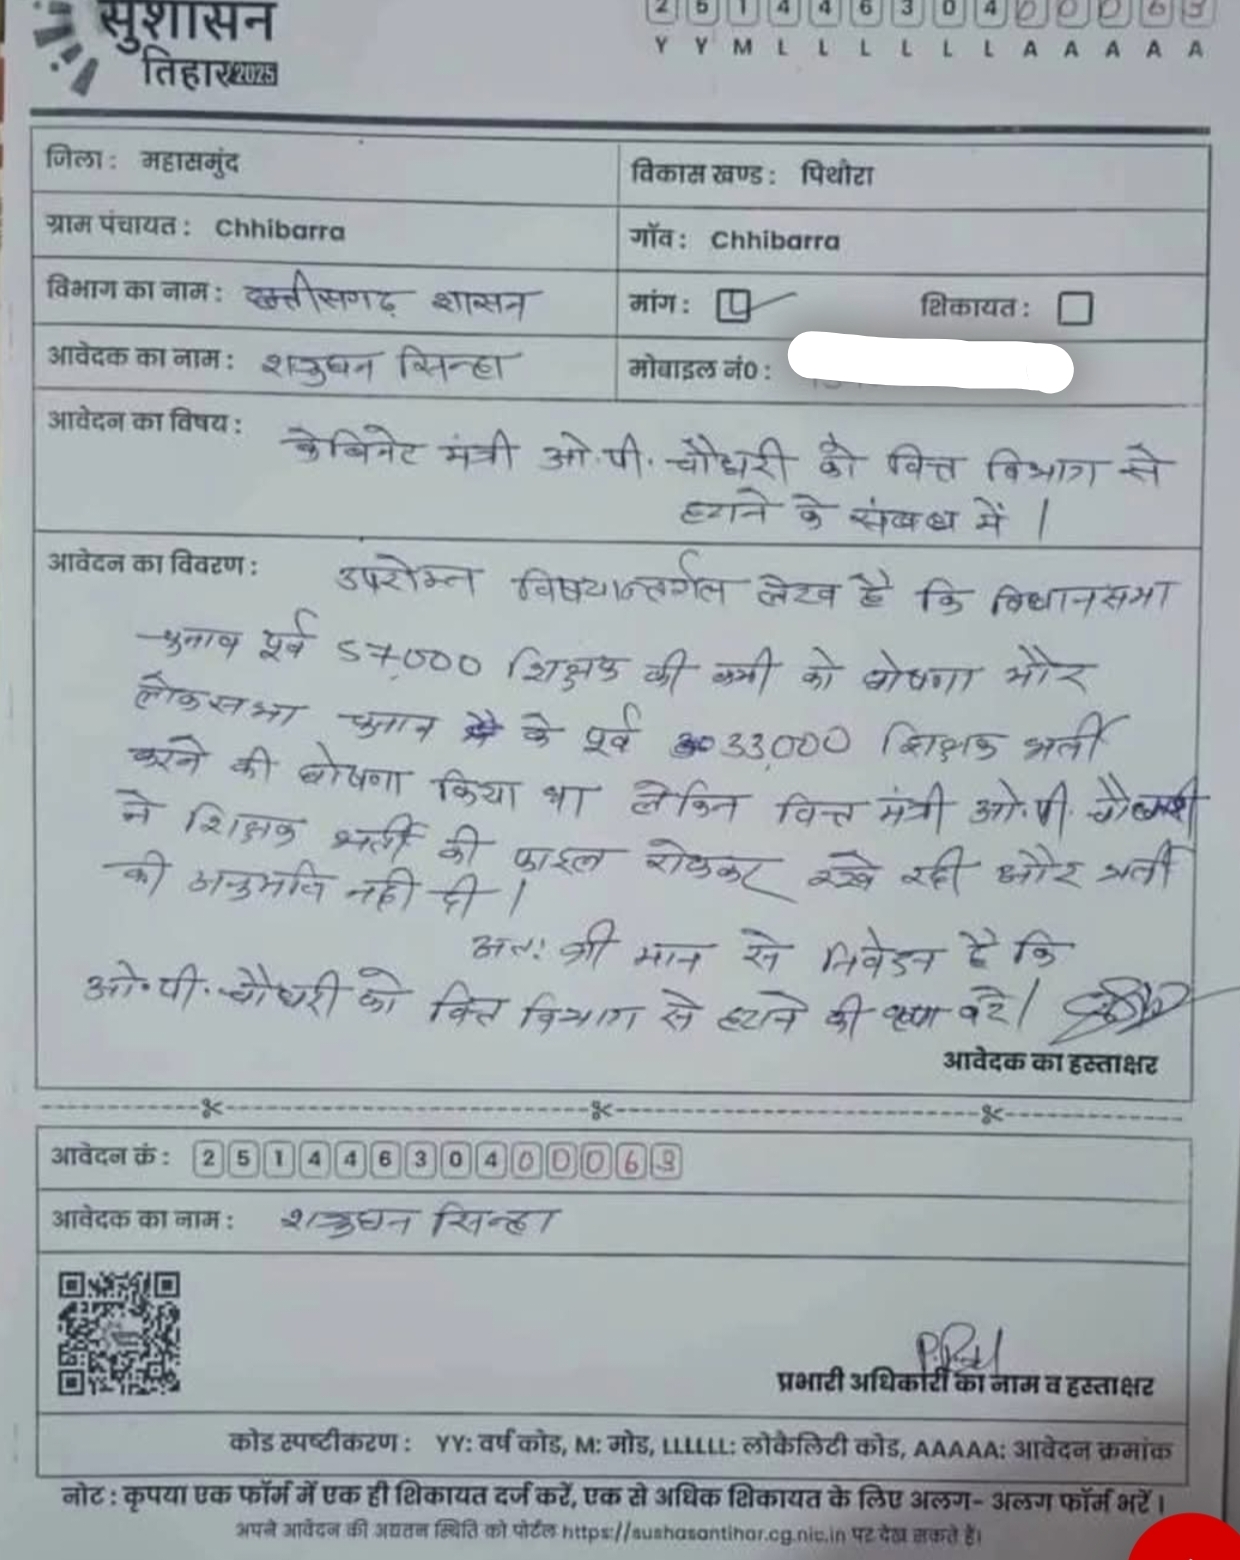 सुशासन
तिहार 2025
2 5 1 4 4 6 3 0 4 0 0 0 6 9
Y Y M L L L L L L A A A A A
जिला : महासमुंद
विकास खण्ड : पिथौरा
ग्राम पंचायत : Chhibarra
गॉव : Chhibarra
विभाग का नाम : छत्तीसगढ़ शासन
मांग :
शिकायत :
आवेदक का नाम : शत्रुघन सिन्हा
मोबाइल नं0 :
आवेदन का विषय : केबिनेट मंत्री ओ.पी. चौधरी को वित्त विभाग से
हटाने के संबंध में |
आवेदन का विवरण : उपरोक्त विषयान्तर्गत लेख है कि विधानसभा
चुनाव पूर्व 57,000 शिक्षक की कमी को घोषणा और
लोकसभा चुनाव के पूर्व 33,000 शिक्षक भर्ती
करने की घोषणा किया था लेकिन वित्त मंत्री ओ.पी. चौधरी
ने शिक्षक भर्ती की फाइल रोककर रखे रही और भर्ती
की अनुमति नही दी |
अतः श्री मान से निवेदन है कि
ओ.पी. चौधरी को वित्त विभाग से हटाने की कृपा करें |
आवेदक का हस्ताक्षर
आवेदन कं : 2 5 1 4 4 6 3 0 4 0 0 0 6 9
आवेदक का नाम : शत्रुघन सिन्हा
प्रभारी अधिकारी का नाम व हस्ताक्षर
कोड स्पष्टीकरण : YY: वर्ष कोड, M: मोड, LLLLLL: लोकेलिटी कोड, AAAAA: आवेदन क्रमांक
नोट : कृपया एक फॉर्म में एक ही शिकायत दर्ज करें, एक से अधिक शिकायत के लिए अलग- अलग फॉर्म भरें |
अपने आवेदन की अद्यतन स्थिति को पोर्टल https://sushasantihar.cg.nic.in पर देख सकते हैं।